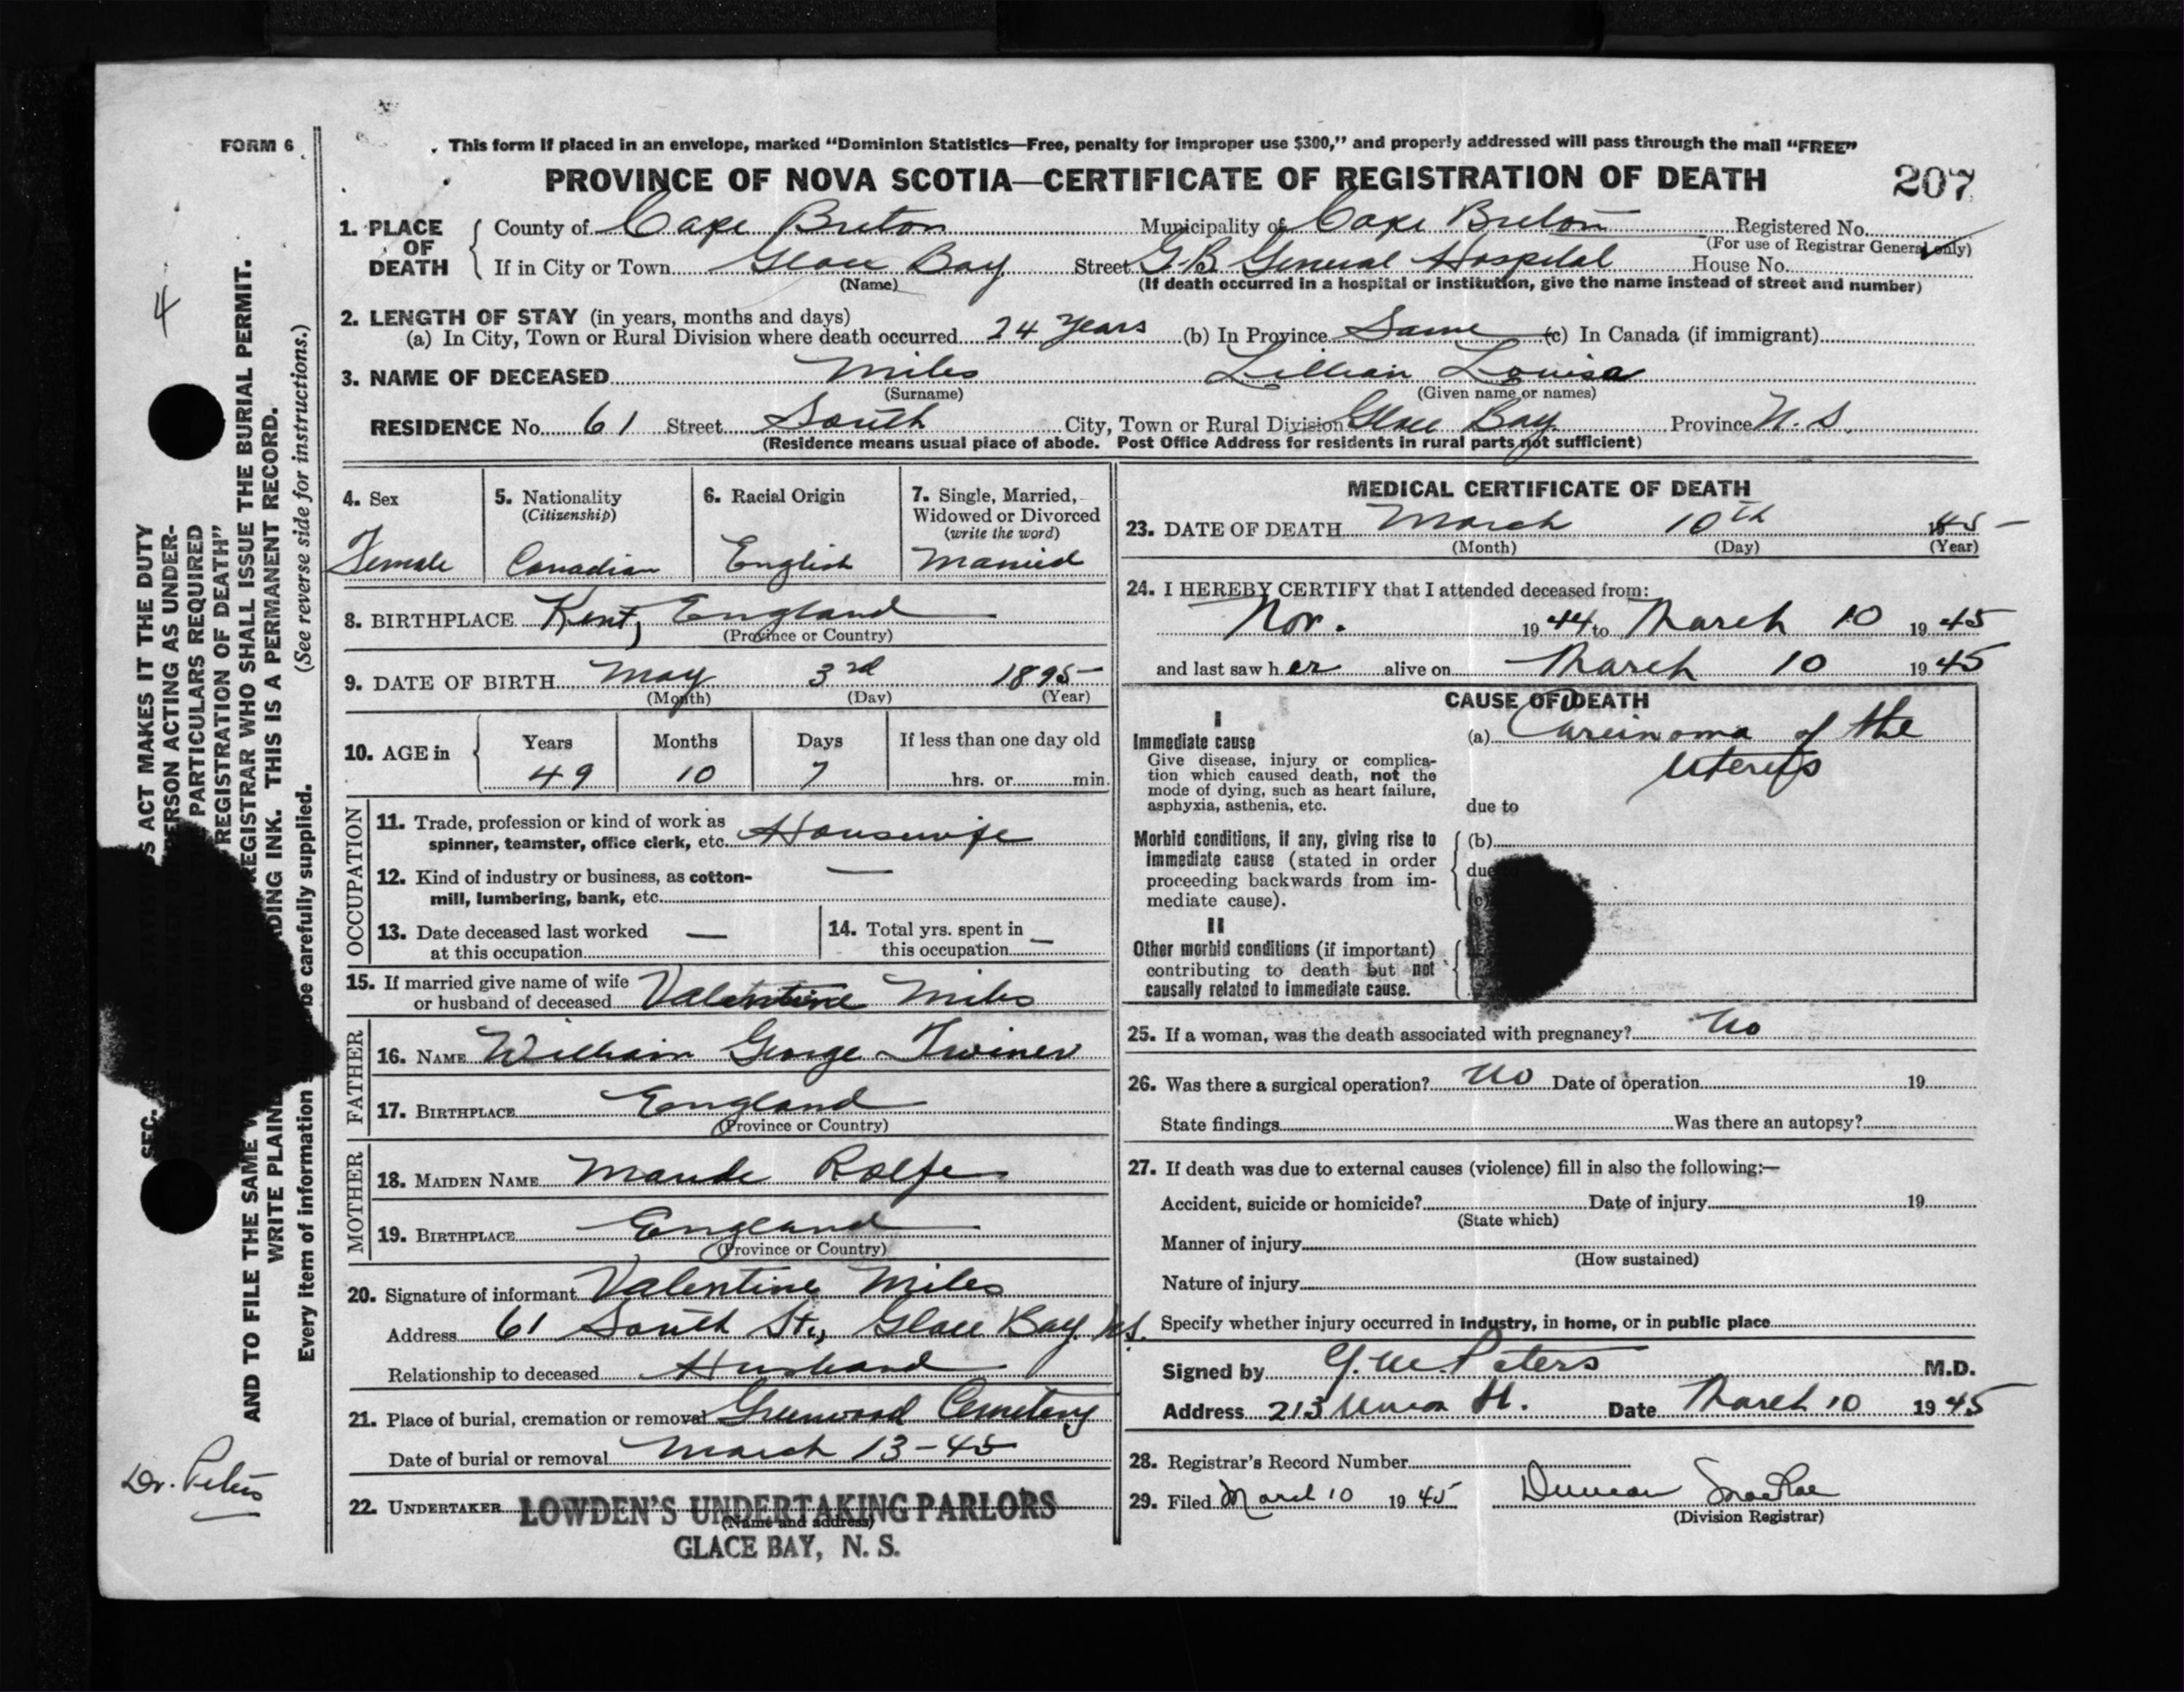 FORM 6
This form if placed in an envelope, marked “Dominion Statistics—Free, penalty for improper use $300,” and properly addressed will pass through the mail “FREE”
PROVINCE OF NOVA SCOTIA—CERTIFICATE OF REGISTRATION OF DEATH 207
1. PLACE OF DEATH
County of Cape Breton Municipality of Cape Breton Registered No.
(For use of Registrar General only)
If in City or Town Glace Bay Street G.B. General Hospital House No.
(Name) (If death occurred in a hospital or institution, give the name instead of street and number)
2. LENGTH OF STAY (in years, months and days)
(a) In City, Town or Rural Division where death occurred 24 Years (b) In Province Same (c) In Canada (if immigrant)
3. NAME OF DECEASED Miles Lillian Louisa
(Surname) (Given name or names)
RESIDENCE No. 61 Street South City, Town or Rural Division Glace Bay Province N.S.
(Residence means usual place of abode. Post Office Address for residents in rural parts not sufficient)
4. Sex
Female
5. Nationality
(Citizenship)
Canadian
6. Racial Origin
English
7. Single, Married,
Widowed or Divorced
(write the word)
Married
8. BIRTHPLACE Kent, England
(Province or Country)
9. DATE OF BIRTH May 3rd 1895
(Month) (Day) (Year)
10. AGE in
Years Months Days If less than one day old
49 10 7 hrs. or min.
OCCUPATION
11. Trade, profession or kind of work as
spinner, teamster, office clerk, etc. Housewife
12. Kind of industry or business, as cotton-
mill, lumbering, bank, etc. —
13. Date deceased last worked
at this occupation —
14. Total yrs. spent in
this occupation —
15. If married give name of wife
or husband of deceased Valentine Miles
FATHER
16. NAME William George Twiner
17. BIRTHPLACE England
(Province or Country)
MOTHER
18. MAIDEN NAME Maude Rolfe
19. BIRTHPLACE England
(Province or Country)
20. Signature of informant Valentine Miles
Address 61 South St., Glace Bay N.S.
Relationship to deceased Husband
21. Place of burial, cremation or removal Greenwood Cemetery
Date of burial or removal March 13-45
22. UNDERTAKER LOWDEN'S UNDERTAKING PARLORS
(Name and address)
GLACE BAY, N. S.
MEDICAL CERTIFICATE OF DEATH
23. DATE OF DEATH March 10th 1945
(Month) (Day) (Year)
24. I HEREBY CERTIFY that I attended deceased from:
Nov. 1944 to March 10 1945
and last saw her alive on March 10 1945
CAUSE OF DEATH
I
Immediate cause
Give disease, injury or complica-
tion which caused death, not the
mode of dying, such as heart failure,
asphyxia, asthenia, etc.
(a) Carcinoma of the
uterus
due to
Morbid conditions, if any, giving rise to
immediate cause (stated in order
proceeding backwards from im-
mediate cause).
(b)
due to
(c)
II
Other morbid conditions (if important)
contributing to death but not
causally related to immediate cause.
25. If a woman, was the death associated with pregnancy? No
26. Was there a surgical operation? No Date of operation 19
State findings Was there an autopsy?
27. If death was due to external causes (violence) fill in also the following:—
Accident, suicide or homicide? Date of injury 19
(State which)
Manner of injury
(How sustained)
Nature of injury
Specify whether injury occurred in industry, in home, or in public place
Signed by G. M. Peters M.D.
Address 213 Union St. Date March 10 1945
28. Registrar's Record Number
29. Filed March 10 1945 Duncan MacRae
(Division Registrar)
4
Dr. Peters
SEC.
S ACT MAKES IT THE DUTY
PERSON ACTING AS UNDER-
PARTICULARS REQUIRED
REGISTRATION OF DEATH”
AND TO FILE THE SAME REGISTRAR WHO SHALL ISSUE THE BURIAL PERMIT.
WRITE PLAIN ADING INK. THIS IS A PERMANENT RECORD.
Every item of information be carefully supplied. (See reverse side for instructions.)